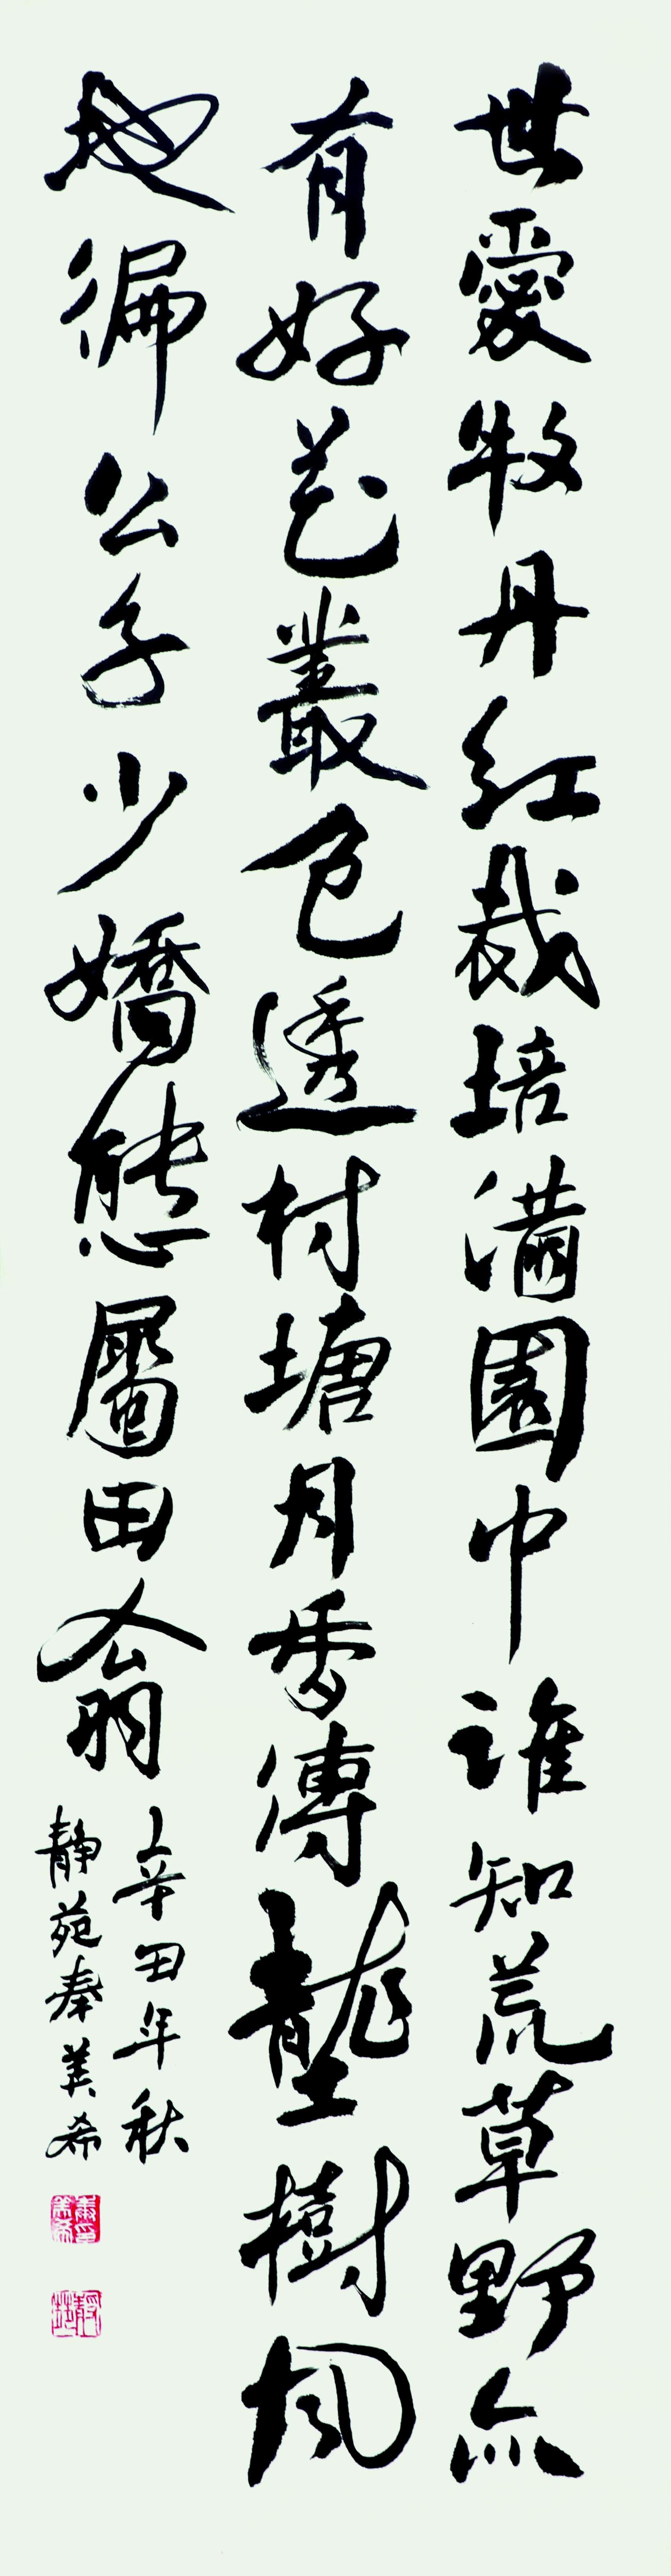 世愛牧丹紅裁培滿園中誰知荒草野亦
有好花叢色透村塘月香傳壟樹風
地徧公子少嬌態屬田翁
辛丑年秋
靜苑秦美希